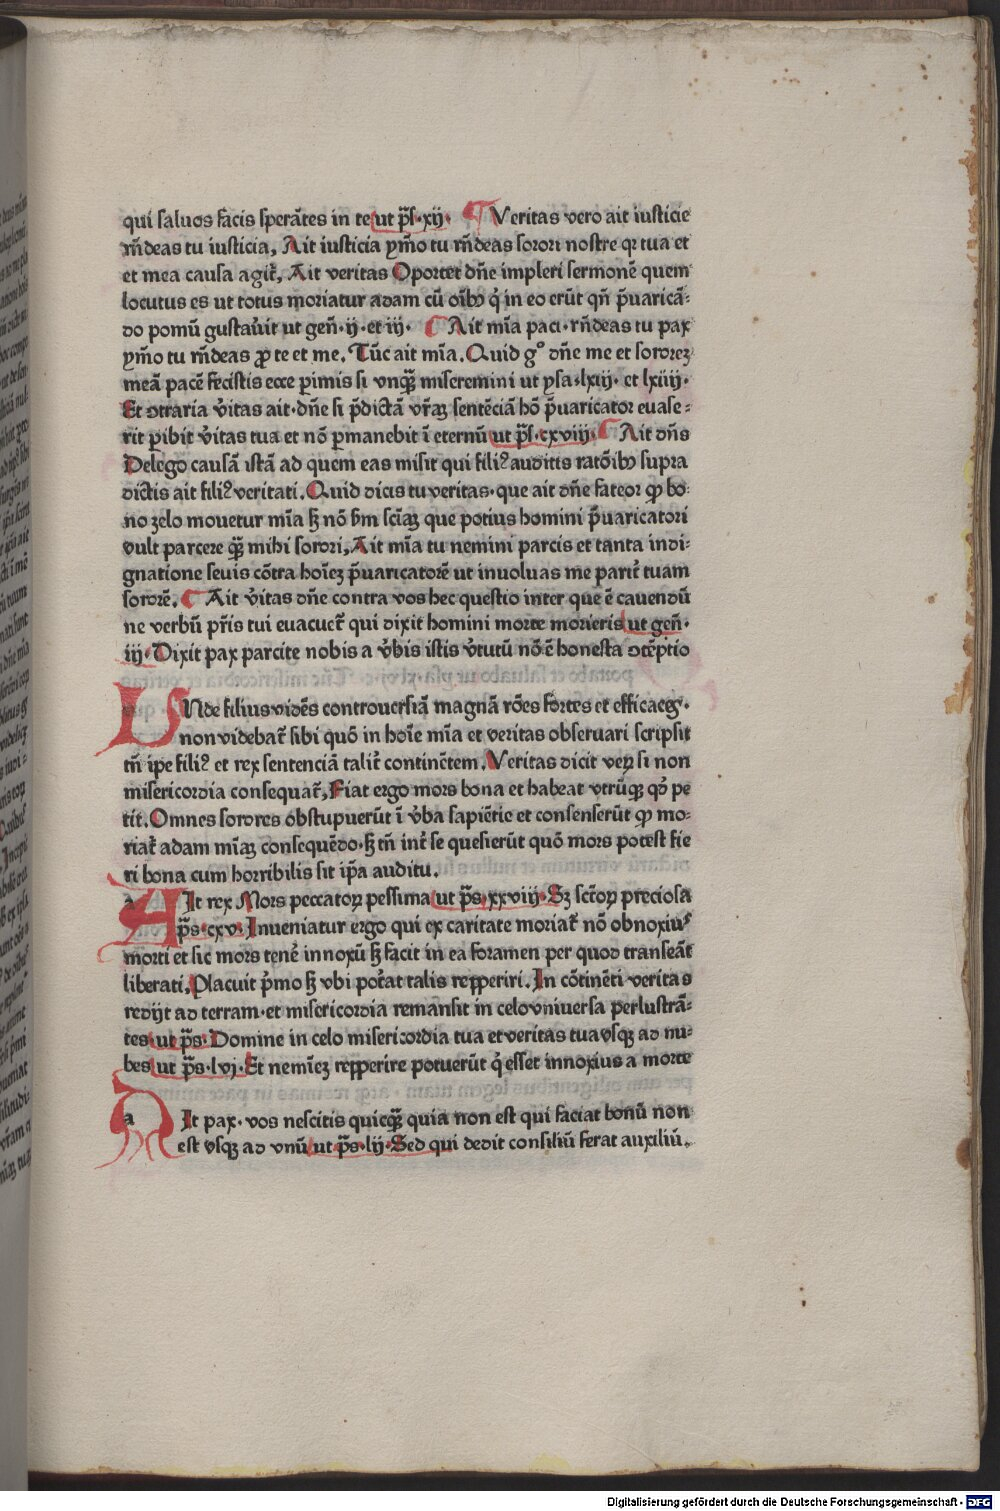 qui saluos facis sperãtes in te ut p̃s·xij· Veritas vero ait iusticie
rñdeas tu iusticia, Ait iusticia ymo tu rñdeas sorori nostre qꝛ tua et
et mea causa agit̃, Ait veritas Oportet dñe impleri sermonẽ quem
locutus es ut totus moriatur adam cũ oĩbꝰ q̇ in eo erũt qñ p̃uaricã-
do pomũ gustauit ut geñ·ij·et iij· Ait mĩa paci·rñdeas tu pax
ymo tu rñdeas ꝓ te et me. Tũc ait mĩa. Quid gº dñe me et sororeʒ
meã pacẽ fecistis ecce perimis si vnqꝫ miseremini ut psa·lxiij· et lxiiij·
Et ↄtraria v̓itas ait·dñe si p̃dictã vr̃aʒ sentẽciã hõ p̃uaricator euase-
rit peribit v̓itas tua et nõ permanebit ĩ eternũ ut p̃s·cxviij· Ait dñs
Delego causã istã ad quem eas misit qui filiꝰ auditis ratõibꝰ supra
dictis ait filiꝰ veritati. Quid dicis tu veritas·que ait dñe fateor ꝙ bo-
no zelo mouetur mĩa sʒ nõ bm̃ sciãʒ que potius homini p̃uaricatori
vult parcere qꝫ mihi sorori, Ait mĩa tu nemini parcis et tanta indi-
gnatione seuis cõtra hoĩeʒ p̃uaricatorẽ ut inuoluas me parit̃ tuam
sororẽ. Ait v̓itas dñe contra vos hec questio inter que ẽ cauendũ
ne verbũ pr̃is tui euacuet̃ qui dixit homini morte morieris ut geñ·
iij· Dixit pax parcite nobis a v̓bis istis v̓tutũ nõ ẽ honesta ↄtẽptio
VNde filius vidẽs controuersiã magnã rões fortes et efficaces·
non videbat̃ sibi quõ in hoĩe mĩa et veritas obseruari scripsit
tñ ipe filiꝰ et rex sentenciã talit̃ continẽtem. Veritas dicit veꝝ si non
misericordia consequat̃, Fiat ergo mors bona et habeat vtrũqꝫ qđ pe
tit. Omnes sorores obstupuerũt ĩ v̓ba sapiẽtie et consenserũt ꝙ mo-
riat̃ adam mĩaʒ consequẽdo·sʒ tñ int̓ se quesierũt quõ mors potest fie
ri bona cum horribilis sit ip̃a auditu.
AIt rex Mors peccatoꝝ pessima ut p̃s·xxviij· Sʒ sc̃toꝝ preciosa
p̃s·cxv· Inueniatur ergo qui ex caritate moriat̃ nõ obnoxiuˢ
morti et sic mors tenẽ innoxũ sʒ facit in ea foramen per quod transeãt
liberati, Placuit p̃mo sʒ vbi pot̓at talis repperiri. In cõtinẽti veritas
redijt ad terram·et misericordia remansit in celo vniuersa perlustrã-
tes ut p̃s· Domine in celo misericordia tua et veritas tua vsqꝫ ad nu-
bes ut p̃s·lvj· Et nemĩeʒ repperire potuerũt q̇ esset innoxius a morte
a It pax·vos nescitis quicqꝫ quia non est qui faciat bonũ non
est vsqꝫ ad vnũ ut p̃s·lij· Sed qui dedit consiliũ ferat auxiliũ.
Digitalisierung gefördert durch die Deutsche Forschungsgemeinschaft · DFG